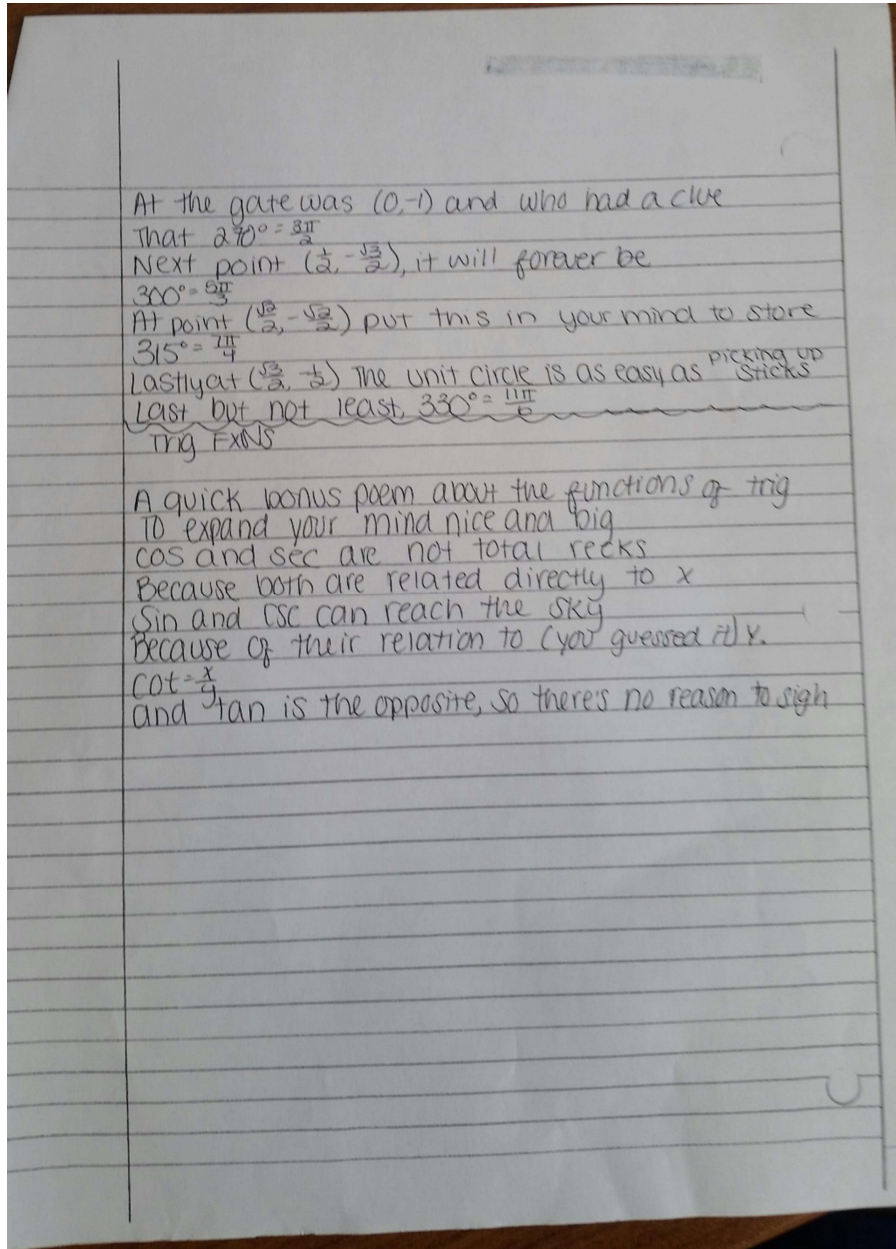 At the gate was (0,-1) and who had a clue
That 270° = 3π/2
Next point (1/2, -√3/2), it will forever be
300° = 5π/3
At point (√2/2, -√2/2) put this in your mind to store
315° = 7π/4
Lastly at (√3/2, -1/2) The unit circle is as easy as picking up sticks
Last but not least, 330° = 11π/6
Trig FXNS
A quick bonus poem about the functions of trig
To expand your mind nice and big
cos and sec are not total recks
Because both are related directly to x
Sin and csc can reach the sky
Because of their relation to (you guessed it) y.
cot = x/y
and tan is the opposite, so there's no reason to sigh